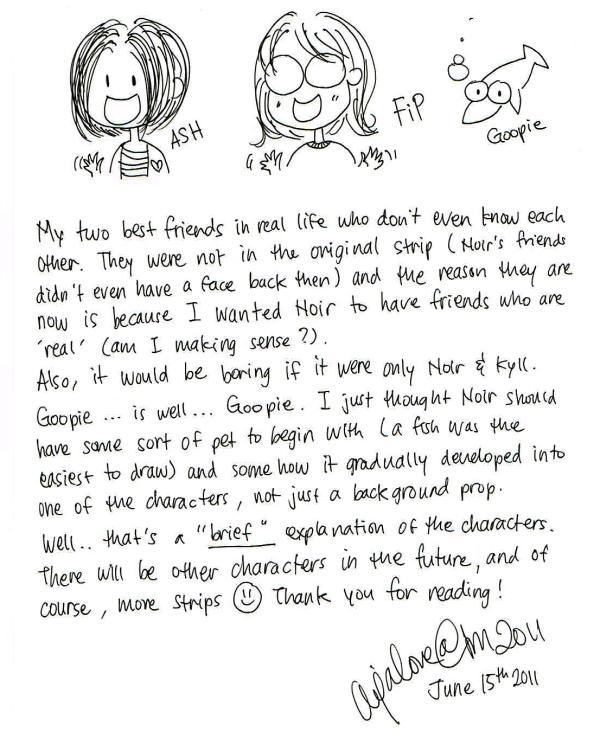 ASH
FiP
Goopie
My two best friends in real life who don't even know each
other. They were not in the original strip (Noir's friends
didn't even have a face back then) and the reason they are
now is because I wanted Noir to have friends who are
'real' (am I making sense?).
Also, it would be boring if it were only Noir & Kyll.
Goopie ... is well... Goopie. I just thought Noir should
have some sort of pet to begin with (a fish was the
easiest to draw) and somehow it gradually developed into
one of the characters, not just a background prop.
Well.. that's a "brief" explanation of the characters.
There will be other characters in the future, and of
course, more strips Thank you for reading!
2011
June 15th 2011